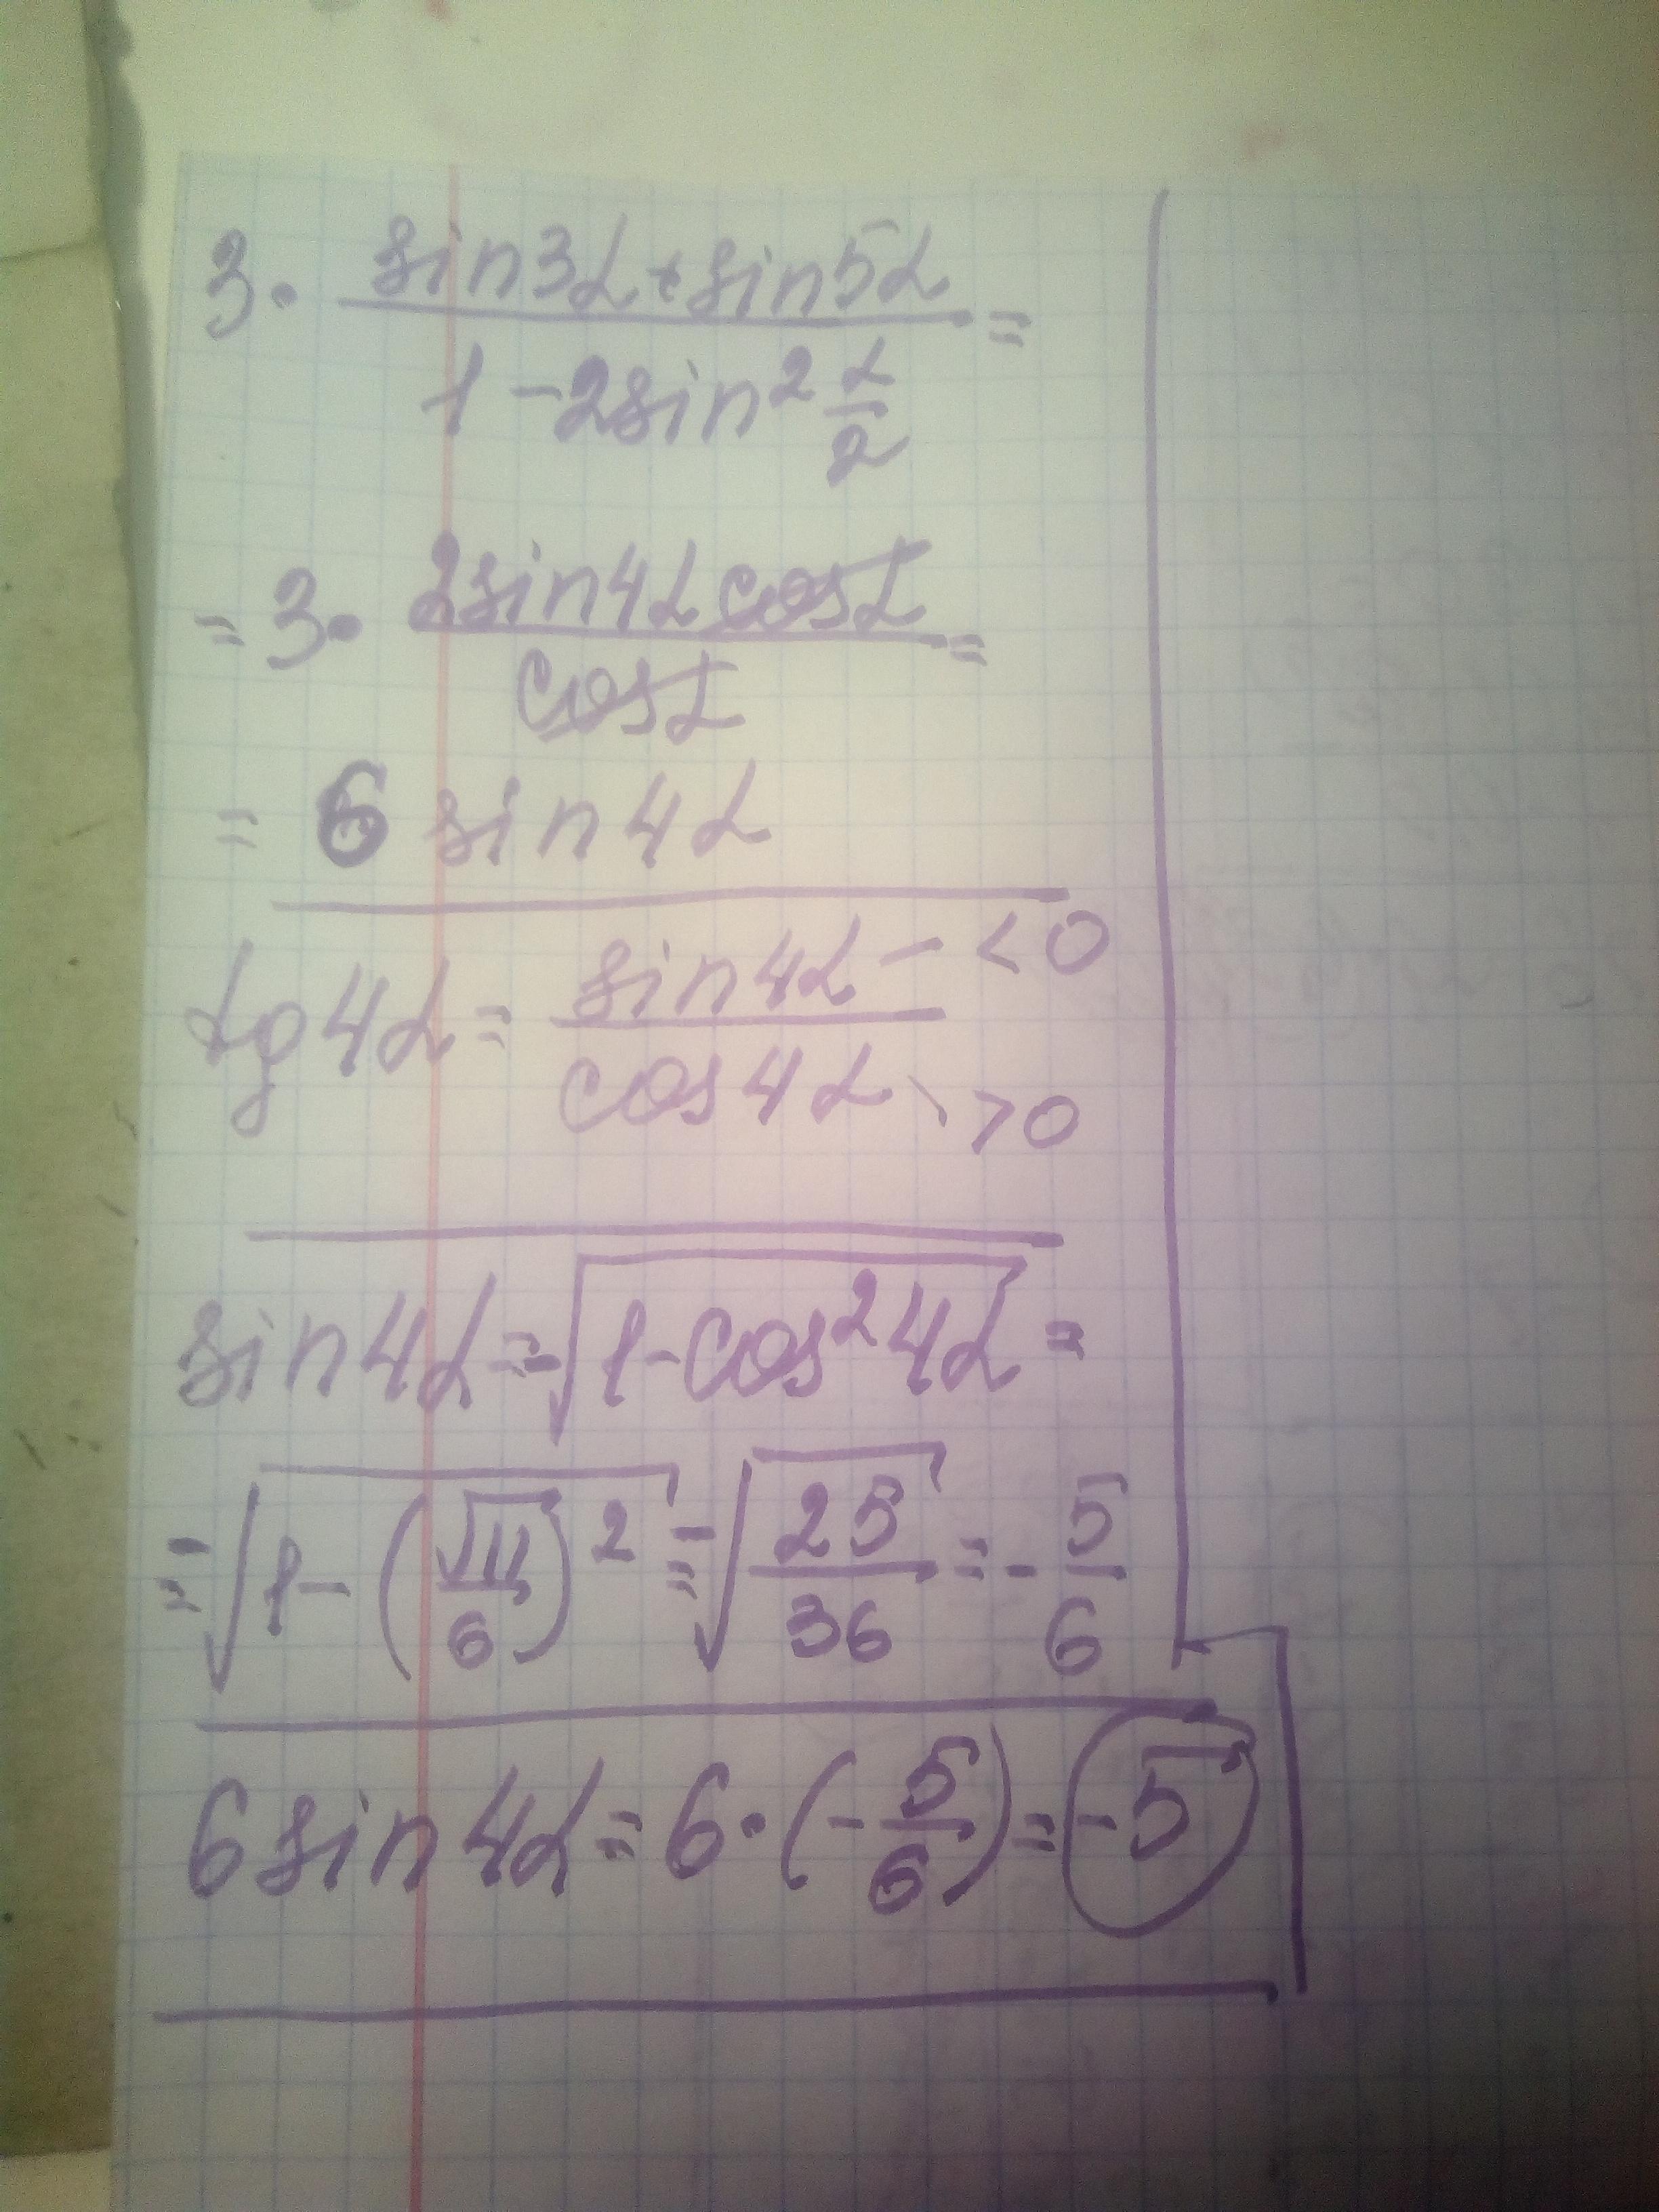 3· (sin3α+sin5α)/(1-2sin²α/2) =
= 3· (2sin4α cosα)/(cosα) =
= 6 sin4α
tg4α = sin4α/cos4α <0 >0
sin4α = -√(1-cos²4α) =
= -√(1-(√11/6)²) = -√(25/36) = -5/6
6sin4α = 6·(-5/6) = -5